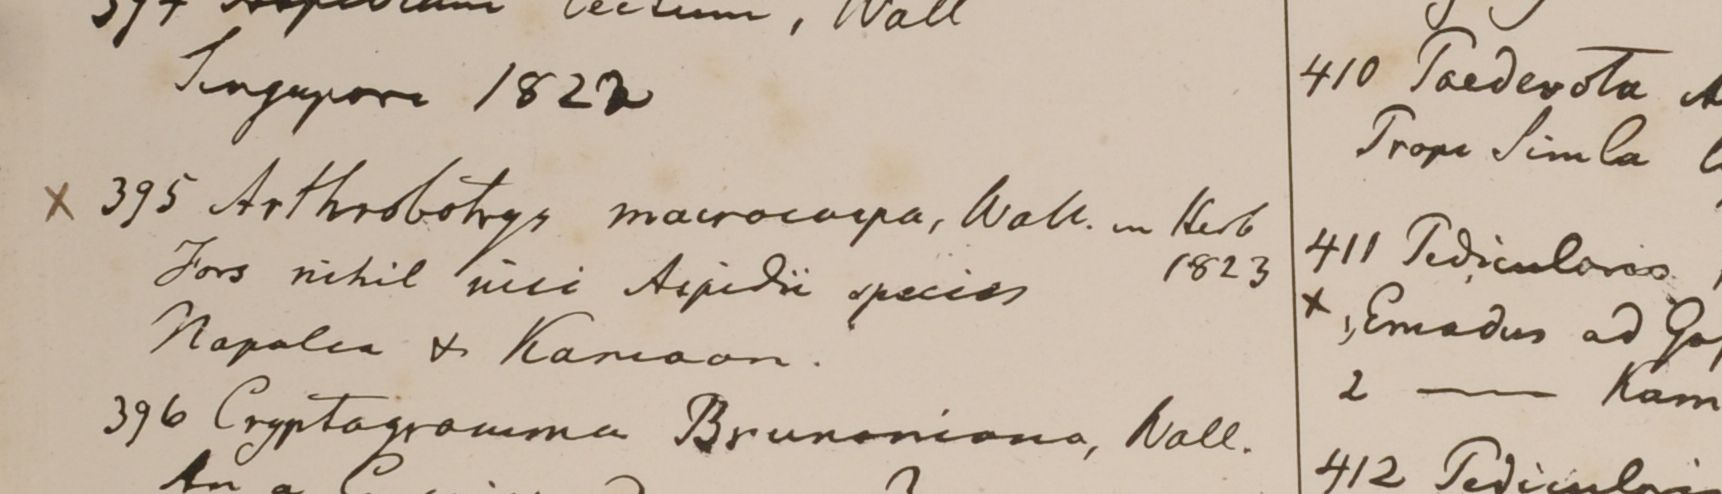 394 Aspidium tectum, Wall
Singapore 1822
x 395 Arthrobotrys macrocarpa, Wall. in Herb
1823
Fors nihil nisi Aspidii species
Napalia & Kamaon.
396 Cryptogramma Brunoniana, Wall.
An a
410 Paederota
Prope Simla
411 Pedicularis
x 1, Emadus ad
2 — Kam
412 Pedicularis